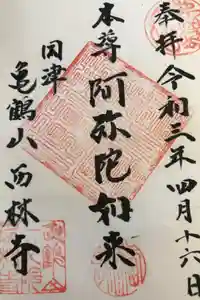 奉拝 令和三年四月十六日
本尊 阿弥陀如来
因津
亀鶴山 西林寺